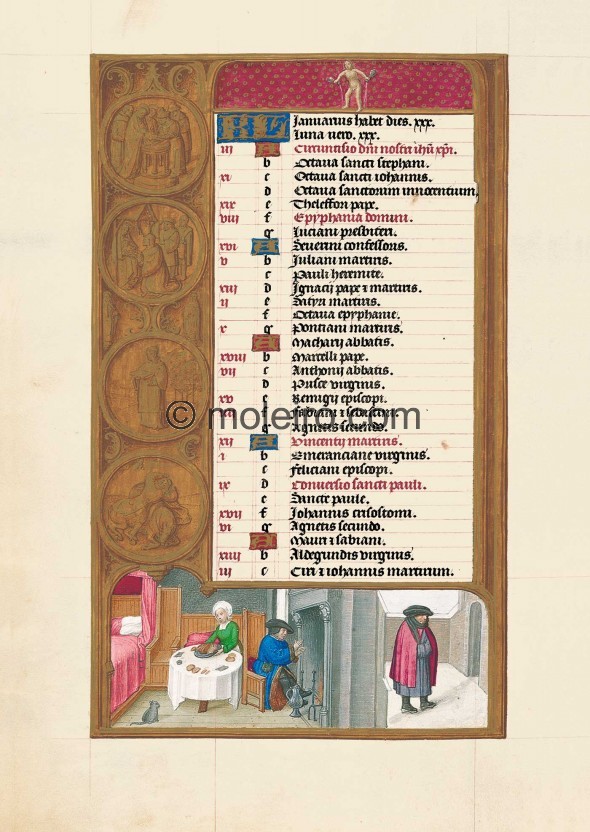 KL Januarius habet dies. xxx.
Luna vero. xxx.
iii A Circumsisio dni nostri ihu xpi.
b Octava sancti stephani.
xi c Octava sancti iohannis.
d Octava sanctorum innocentium.
xix e Theleffon pape.
viii f Epyphania domini.
g Luciani presbiteri.
xvi A Severini confessoris.
v b Juliani martiris.
c Pauli heremite.
xiii d Ignacij pape ⁊ martiris.
ii e Satyri martiris.
f Octava epyphanie.
x g Pontiani martiris.
A Macharij abbatis.
xviii b Marcelli pape.
vii c Anthonij abbatis.
d Prisce virginis.
xv e Remigij episcopi.
f Fabiani ⁊ sebastiani.
g Agnetis secundo.
xii A Vincentij martiris.
i b Emeranciane virginis.
c Feliciani episcopi.
ix d Conversio sancti pauli.
e Sancte paule.
xvii f Johannis crisostomi.
vi g Agnetis secundo.
A Mauri ⁊ sabiani.
xiiii b Aldegundis virginis.
iii c Ciri ⁊ iohannis martirum.
© moleiro.com